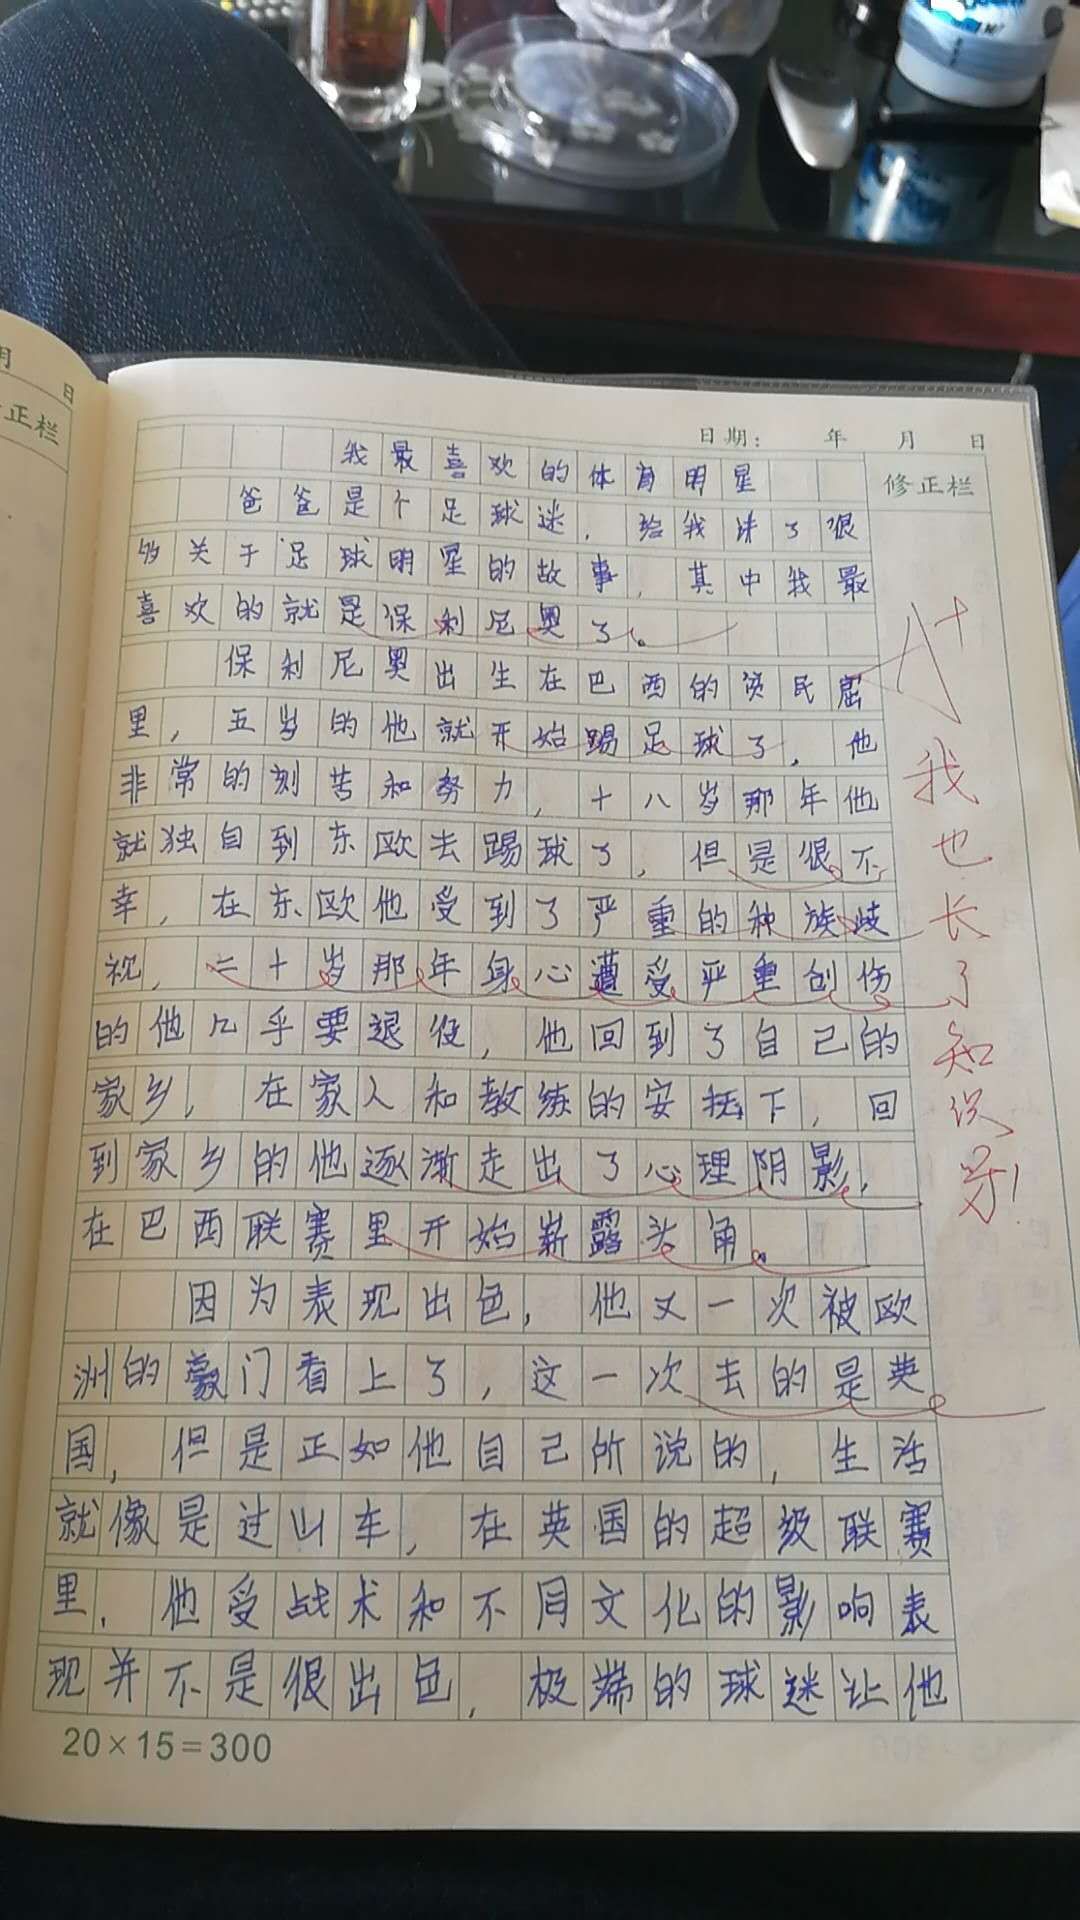 月 日
正栏
日期： 年 月 日
修正栏
我最喜欢的体育明星
爸爸是个足球迷，给我讲了很
多关于足球明星的故事，其中我最
喜欢的就是保利尼奥了。
保利尼奥出生在巴西的贫民窟
里，五岁的他就开始踢足球了，他
非常的刻苦和努力，十八岁那年他
就独自到东欧去踢球了，但是很不
幸，在东欧他受到了严重的种族歧
视，二十岁那年身心遭受严重创伤
的他几乎要退役，他回到了自己的
家乡，在家人和教练的安抚下，回
到家乡的他逐渐走出了心理阴影，
在巴西联赛里开始崭露头角。
因为表现出色，他又一次被欧
洲的豪门看上了，这一次去的是英
国，但是正如他自己所说的，生活
就像是过山车，在英国的超级联赛
里，他受战术和不同文化的影响表
现并不是很出色，极端的球迷让他
我也长了知识呀！
20×15=300